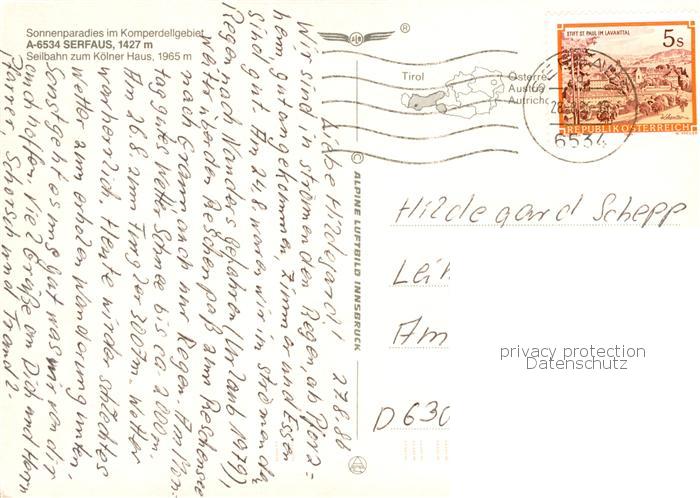 Sonnenparadies im Komperdellgebiet
A-6534 SERFAUS, 1427 m
Seilbahn zum Kölner Haus, 1965 m
®
Tirol
Österre
Austria
Autriche
STIFT ST. PAUL IM LAVANTTAL
5s
REPUBLIK ÖSTERREICH
6534
© ALPINE LUFTBILD INNSBRUCK
Liebe Hildegard! 27.8.86
Wir sind in strömenden Regen, ab
heim, gut angekommen, Zimmer und Essen
sind gut. Am 24.8 waren wir in strömenden
Regen nach Nauders gefahren (Urlaub 1979),
weiter über den Reschenpaß zum Reschensee
nach Graun, auch nur Regen. Am Mon-
tag gutes Wetter Schnee bis ca 2000m.
Am 26.8. zum 3007m. Wetter
war herrlich. Heute wieder schlechtes
Wetter zum erholen Wanderung unten,
Sonst geht es uns gut was wir von dir
auch hoffen. Viel Grüße an Dich und Herrn
Pfarrer, Schorsch und
Hildegard Schepp
Lei
Am
D 630
privacy protection
Datenschutz